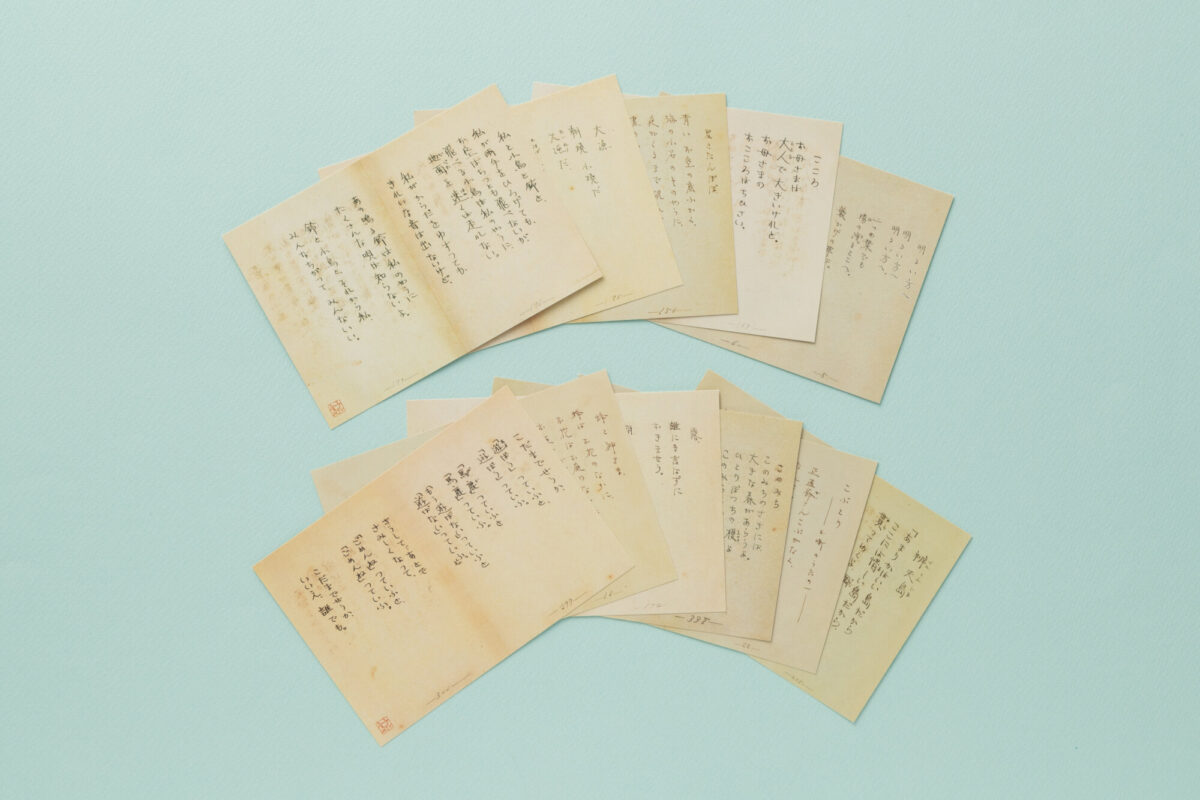 私と小鳥と鈴と、
私が両手をひろげても、
お空はちつとも飛べないが
飛べる小鳥は私のやうに、
地面を速くは走れない。
私がからだをゆすつても、
きれいな音は出ないけど、
あの鳴る鈴は私のやうに
たくさんな唄は知らないよ。
鈴と、小鳥と、それから私、
みんなちがつて、みんないい。
大漁
朝焼小焼だ
大漁だ
星とたんぽぽ
青いお空の底ふかく、
海の小石のそのやうに
夜がくるまで沈んで
こころ
お母さまは
大人で大きいけれど。
お母さまの
おこころはちひさい。
明るい方へ
明るい方へ
明るい方へ。
一つの葉でも
陽の洩るとこへ。
藪かげの草は。
こだまでせうか
「遊ぼう」つていふと
「遊ぼう」つていふ。
「馬鹿」つていふと
「馬鹿」つていふ。
「もう遊ばない」つていふと
「遊ばない」つていふ。
さうして、あとで
さみしくなつて、
「ごめんね」つていふと
「ごめんね」つていふ。
こだまでせうか、
いいえ、誰でも。
—300—
—299—
蜂と神さま
蜂はお花のなかに、
お花はお庭のな
露
誰にも言はずに
おきませう。
このみち
このみちのさきには
大きな森があらうよ。
ひとりぼつちの榎よ
このみ
—333—
こぶとり
正直爺さんこぶがなく、
弁天島
「あまりかはいい島だから
ここには惜しい島だから